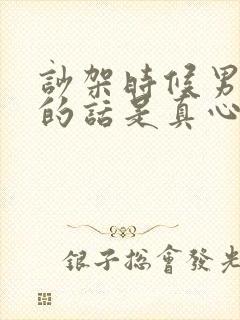 訬架時候男
的話是真心
銀子總會發光